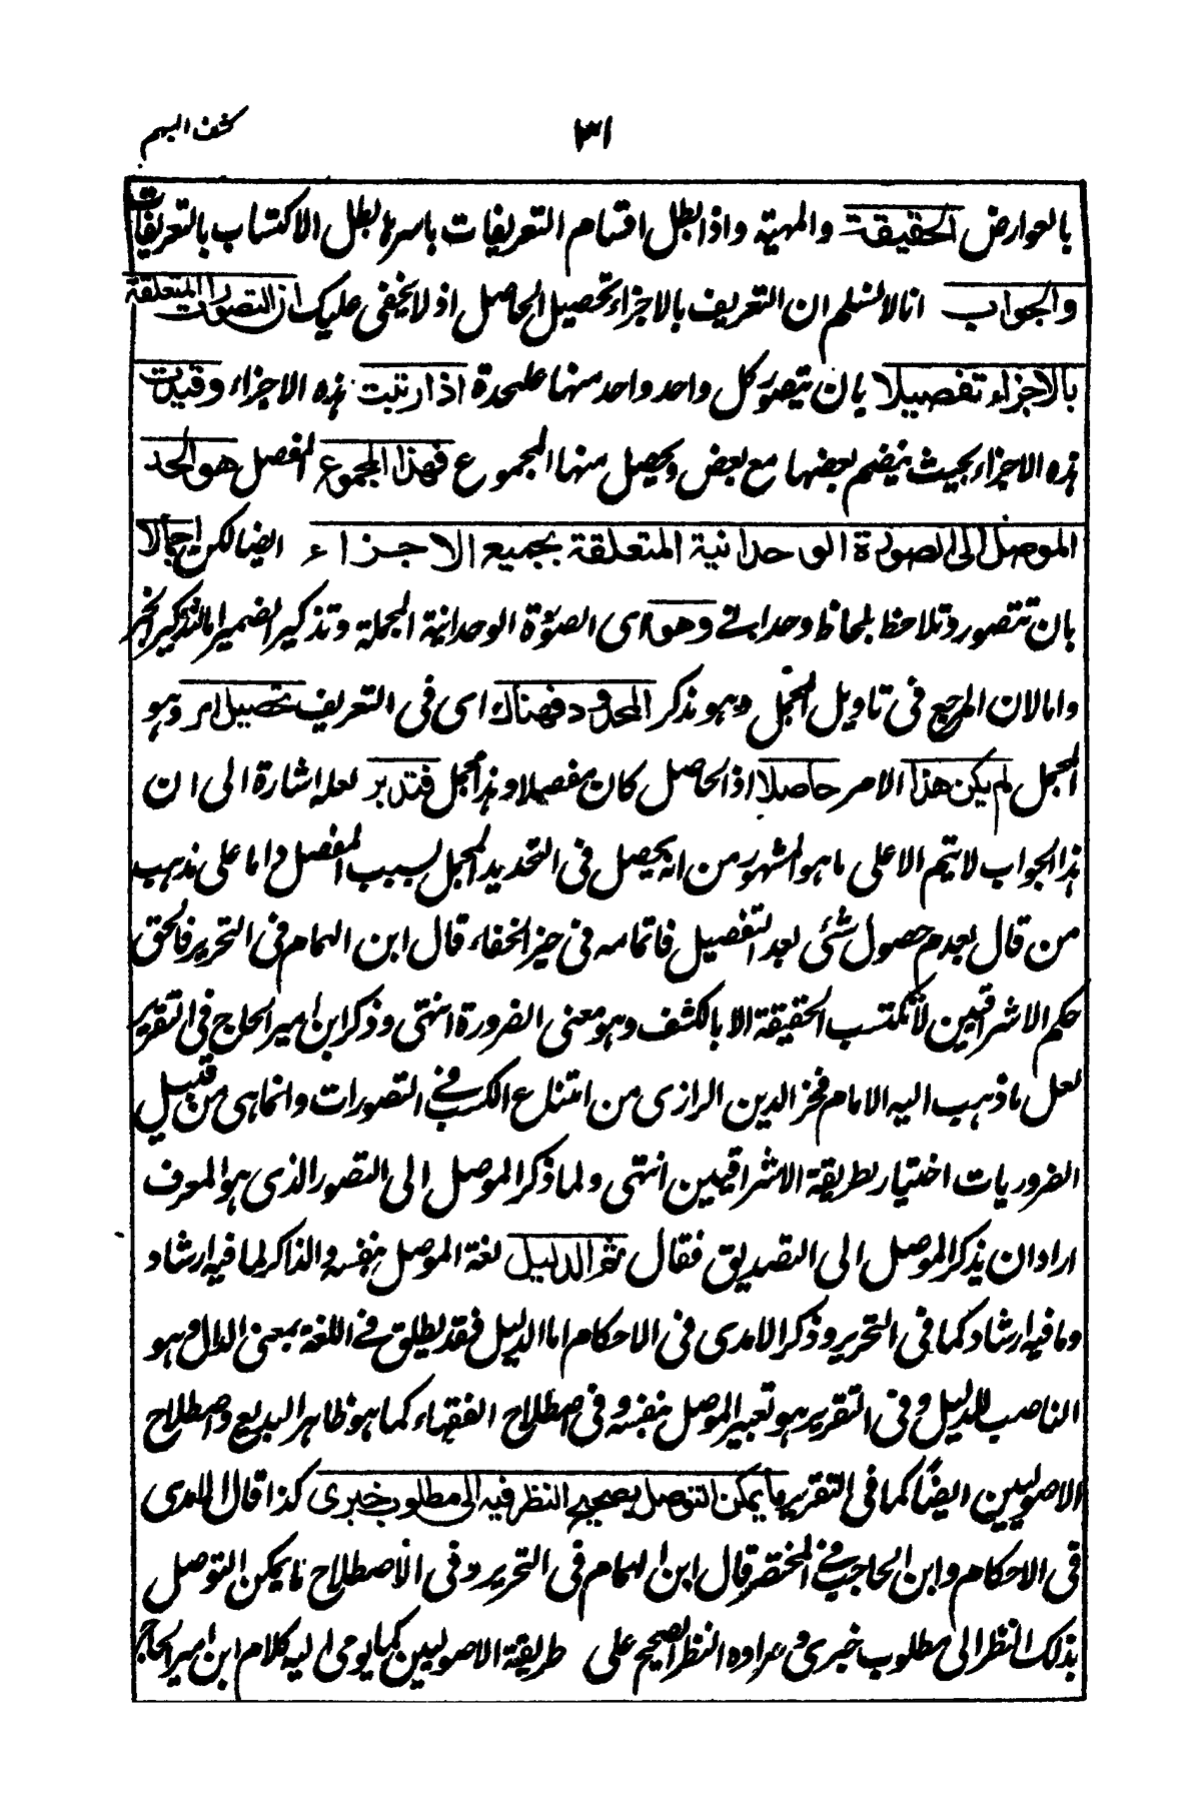 كشف المبهم
٣١
بالعوارض الحقيقة والمهية واذا بطل اقسام التعريفات باسرها بطل الاكتساب بالتعريفات
والجواب انا لا نسلم ان التعريف بالاجزاء تحصيل الحاصل اذ لا يخفى عليك ان التصورات المتعلقة
بالاجزاء تفصيلا بان يتصور كل واحد واحد منها علىحدة اذا رتبت هذه الاجزاء وقيدت
هذه الاجزاء بحيث ينضم بعضها مع بعض ويحصل منها المجموع فهذا المجموع المفصل هو الحد
الموصل الى الصورة الوحدانية المتعلقة بجميع الاجزاء ايضا لكن اجمالا
بان تتصور وتلاحظ بلحاظ وحداني وهو اى الصورة الوحدانية المجملة وتذكير الضمير اما لتذكير الخبر
واما لان المرجع فى تاويل المجمل وهو مذكر المحدود فهناك اى فى التعريف تحصيل امر وهو
المجمل لم يكن هذا الامر حاصلا اذ الحاصل كان مفصلا وهذا مجمل فتدبر لعله اشارة الى ان
هذا الجواب لا يتم الا على ما هو المشهور من انه يحصل فى التحديد المجمل بسبب المفصل واما على مذهب
من قال بعدم حصول شئى بعد التفصيل فاتمامه فى حيز الخفاء قال ابن الهمام فى التحرير فالحق
حكم الاشراقيين لا تكتسب الحقيقة الا بالكشف وهو معنى الضرورة انتهى وذكر ابن امير الحاج فى التقرير
لعل ما ذهب اليه الامام فخر الدين الرازى من امتناع الكسب فى التصورات وانما هى من قبيل
الضروريات اختيار لطريقة الاشراقيين انتهى ولما ذكر الموصل الى التصور الذى هو المعرف
اراد ان يذكر الموصل الى التصديق فقال ثم الدليل لغة الموصل بنفسه والذاكر لما فيه ارشاد
وما فيه ارشاد كما فى التحرير وذكر الامدى فى الاحكام اما الدليل فقد يطلق فى اللغة بمعنى الدال وهو
الناصب للدليل وفى التقرير هو تعبير الموصل بنفسه وفى اصطلاح الفقهاء كما هو ظاهر البديع واصطلاح
الاصوليين ايضا كما فى التقرير ما يمكن التوصل بصحيح النظر فيه الى مطلوب خبرى كذا قال الامدى
فى الاحكام وابن الحاجب فى المختصر قال ابن الهمام فى التحرير وفى الاصطلاح ما يمكن التوصل
بذلك النظر الى مطلوب خبرى ومراده النظر الصحيح على طريقة الاصوليين كما يومى اليه كلام ابن امير الحاج